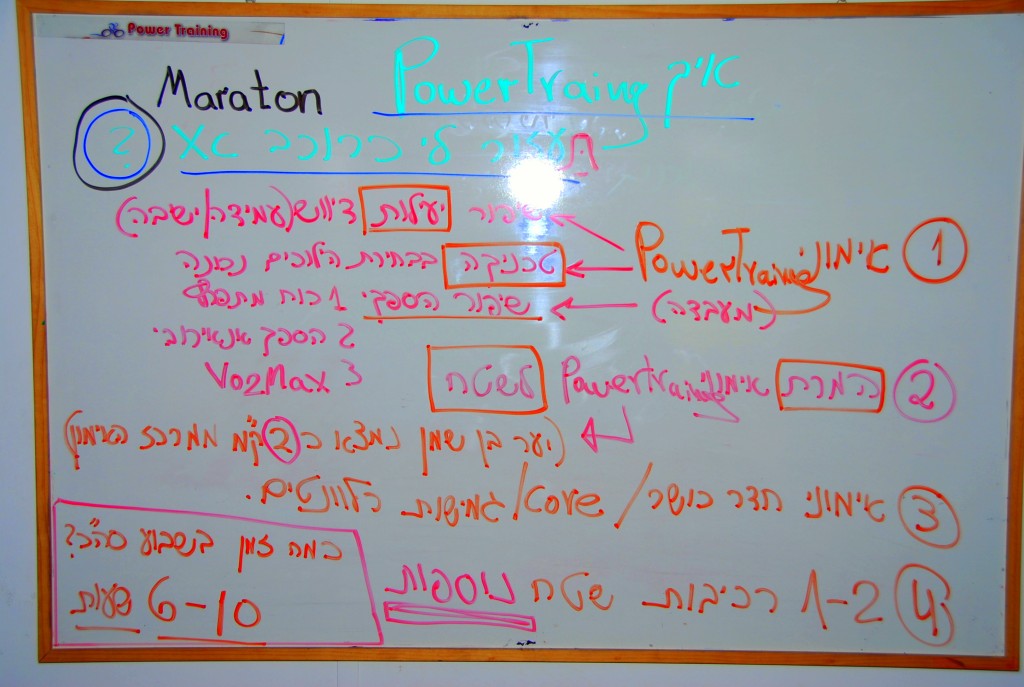 Power Training
איך PowerTraing
Maraton
תעזור לי כרוכב XC?
1 אימוני PowerTraining
(מעבדה)
שיפור יעילות דיווש (עמידה/ישיבה)
טכניקה בבחירת הילוכים נכונה
שיפור הספק: 1 כוח מתפרץ
2 הספק אנאירובי
3 Vo2Max
2 המרת אימוני PowerTraining לשטח
(יער בן שמן נמצא כ 2 ק"מ ממרכז האימון)
3 אימוני חדר כושר / core / גמישות רלוונטים.
4 1-2 רכיבות שטח נוספות
כמה זמן בשבוע סה"כ?
6-10 שעות